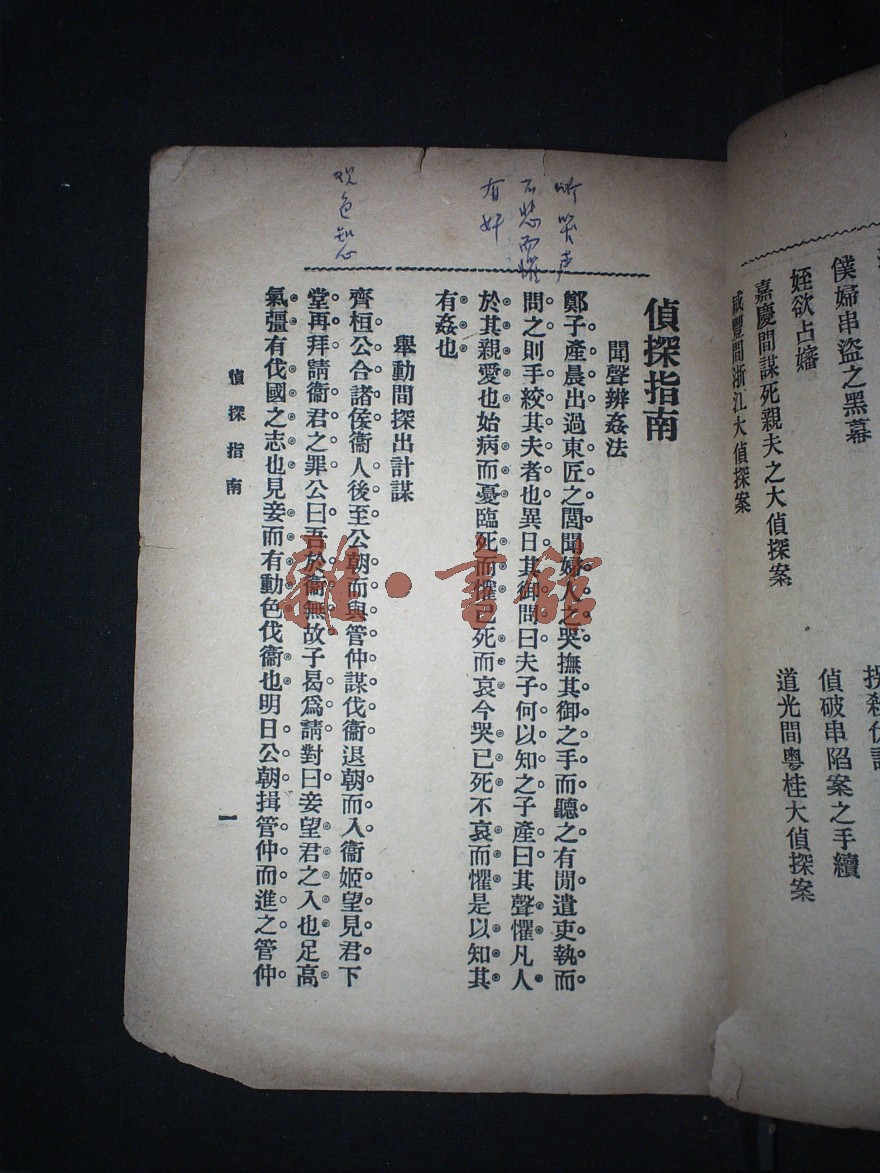 僕婦串盜之黑幕
姪欲占嬸
嘉慶間謀死親夫之大偵探案
咸豐間浙江大偵探案
偵破串陷案之手續
道光間粵桂大偵探案
听哭声
不悲而懼
有奸
观色知心
偵探指南
聞聲辨姦法
鄭子產晨出過東匠之閭聞婦人之哭撫其御之手而聽之有閒遣吏執而
問之則手絞其夫者也異日其御問曰夫子何以知之子產曰其聲懼凡人
於其親愛也始病而憂臨死而懼已死而哀今哭已死不哀而懼是以知其
有姦也
舉動間探出計謀
齊桓公合諸侯衞人後至公朝而與管仲謀伐衞退朝而入衞姬望見君下
堂再拜請衞君之罪公曰吾於衞無故子曷爲請對曰妾望君之入也足高
氣彊有伐國之志也見妾而有動色伐衞也明日公朝揖管仲而進之管仲
偵探指南
一
雜·書館